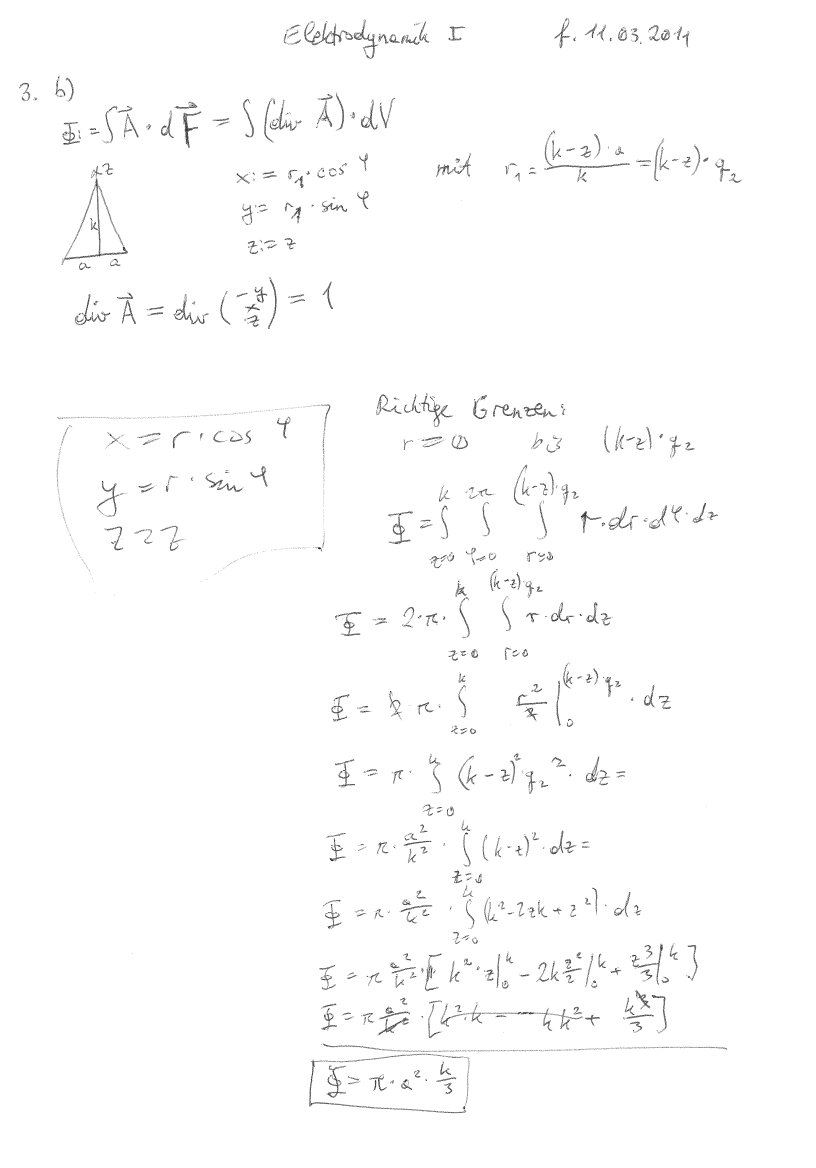 Elektrodynamik I f. 11.03.2011
3. b)
Φ := ∫ A⃗ · dF⃗ = ∫ (div A⃗) · dV
x := r₁ · cos φ mit r₁ = (k-z)·a / k = (k-z) · q₂
y := r₁ · sin φ
z := z
z
k
a a
div A⃗ = div (-y x z) = 1
Richtige Grenzen:
r = 0 bis (k-z) · q₂
x = r · cos φ
y = r · sin φ
z = z
Φ = ∫_{z=0}^{k} ∫_{φ=0}^{2π} ∫_{r=0}^{(k-z)·q₂} r · dr · dφ · dz
Φ = 2 · π · ∫_{z=0}^{k} ∫_{r=0}^{(k-z)·q₂} r · dr · dz
Φ = 2 · π · ∫_{z=0}^{k} r²/2 |_0^{(k-z)·q₂} · dz
Φ = π · ∫_{z=0}^{k} (k-z)² q₂² · dz =
Φ = π · a²/k² · ∫_{z=0}^{k} (k-z)² · dz =
Φ = π · a²/k² · ∫_{z=0}^{k} (k² - 2zk + z²) · dz
Φ = π a²/k² · [k² · z|_0^k - 2k z²/2 |_0^k + z³/3 |_0^k]
Φ = π a²/k² · [k² · k - k k² + k³/3]
Φ = π · a² · k/3